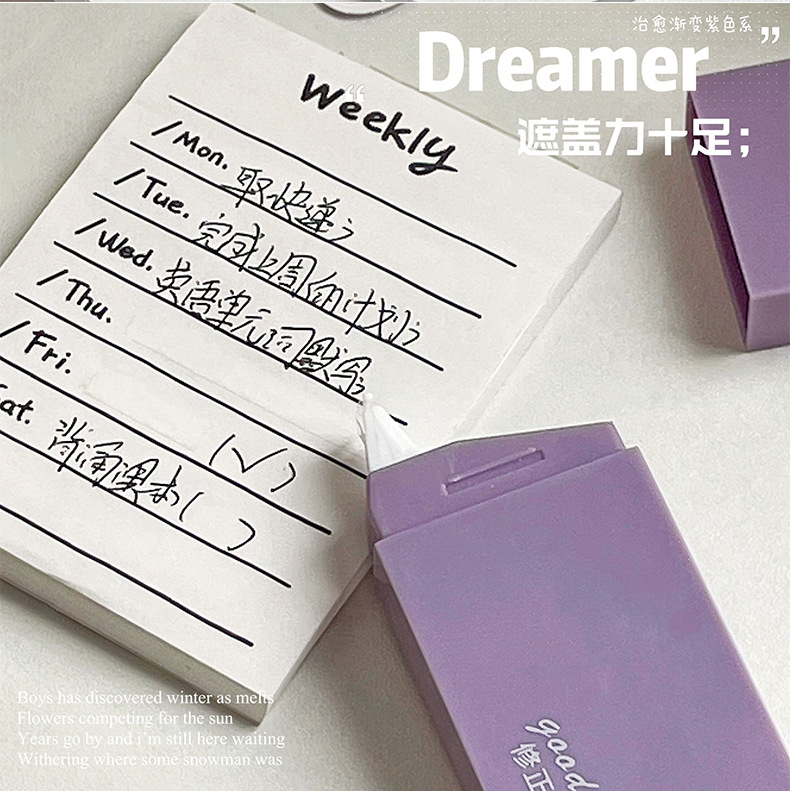 治愈渐变紫色系
Dreamer
遮盖力十足；
Weekly
/Mon. 取快递；
/Tue. 完成上周的计划；
/Wed. 英语单元词默写
/Thu.
/Fri. (√)
at. 背诵课本( )
Boys has discovered winter as melts
Flowers competing for the sun
Years go by and i'm still here waiting
Withering where some snowman was
good
修正